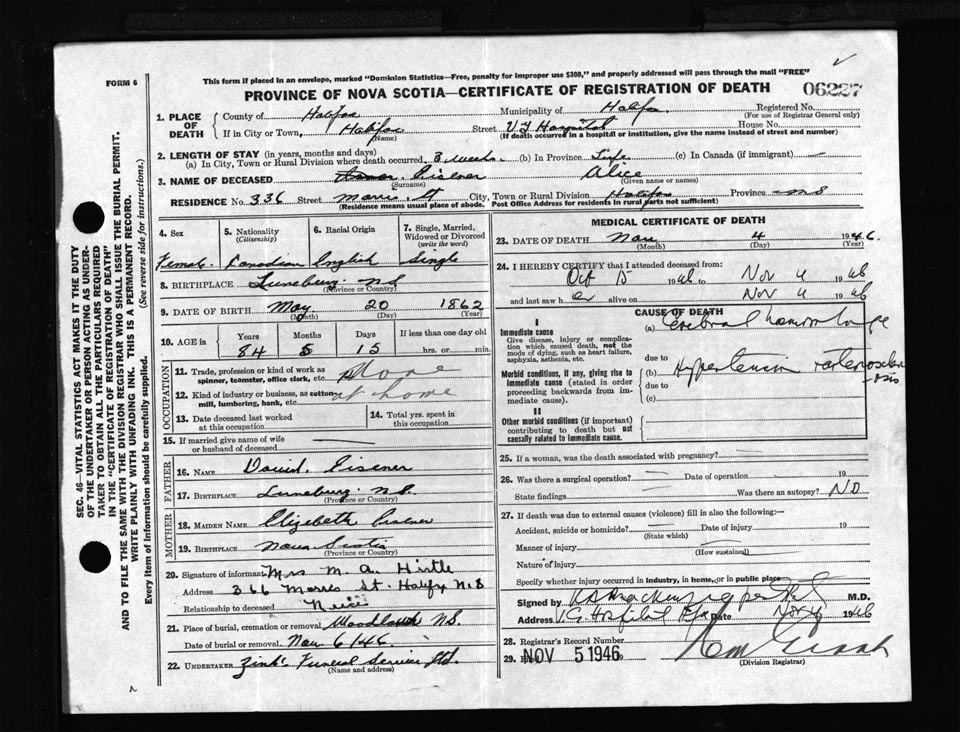 FORM 6
This form if placed in an envelope, marked "Dominion Statistics—Free, penalty for improper use $300," and properly addressed will pass through the mail "FREE"
PROVINCE OF NOVA SCOTIA—CERTIFICATE OF REGISTRATION OF DEATH
06227
1. PLACE OF DEATH
County of Halifax Municipality of Halifax Registered No.
(For use of Registrar General only)
If in City or Town, Halifax Street V G Hospital House No.
(Name) (If death occurred in a hospital or institution, give the name instead of street and number)
2. LENGTH OF STAY (in years, months and days)
(a) In City, Town or Rural Division where death occurred 3 weeks (b) In Province Life (c) In Canada (if immigrant) —
3. NAME OF DECEASED Eisener Alice
(Surname) (Given name or names)
RESIDENCE No. 336 Street Morris St City, Town or Rural Division Halifax Province N S
(Residence means usual place of abode. Post Office Address for residents in rural parts not sufficient)
4. Sex
Female
5. Nationality
(Citizenship)
Canadian
6. Racial Origin
English
7. Single, Married, Widowed or Divorced
(write the word)
Single
8. BIRTHPLACE Lunenburg N S
(Province or Country)
9. DATE OF BIRTH May 20 1862
(Month) (Day) (Year)
10. AGE in Years Months Days If less than one day old
84 5 15 hrs. or min.
OCCUPATION
11. Trade, profession or kind of work as spinner, teamster, office clerk, etc. None
12. Kind of industry or business, as cotton-mill, lumbering, bank, etc. at home
13. Date deceased last worked at this occupation
14. Total yrs. spent in this occupation
15. If married give name of wife or husband of deceased —
FATHER
16. NAME David Eisener
17. BIRTHPLACE Lunenburg N.S.
(Province or Country)
MOTHER
18. MAIDEN NAME Elizabeth Eisener
19. BIRTHPLACE Nova Scotia
(Province or Country)
20. Signature of informant Mrs M. A. Hirtle
Address 366 Morris St. Halifax N S
Relationship to deceased Neice
21. Place of burial, cremation or removal N.S.
Date of burial or removal Nov 6/46
22. UNDERTAKER Zink's Funeral Service Ltd.
(Name and address)
MEDICAL CERTIFICATE OF DEATH
23. DATE OF DEATH Nov 4 1946.
(Month) (Day) (Year)
24. I HEREBY CERTIFY that I attended deceased from:
Oct 15 1946 Nov 4 1946
and last saw h er alive on Nov 4 1946
CAUSE OF DEATH
I
Immediate cause
Give disease, injury or complication which caused death, not the mode of dying, such as heart failure, asphyxia, asthenia, etc.
(a) Cerebral hemorrhage
due to
Morbid conditions, if any, giving rise to immediate cause (stated in order proceeding backwards from immediate cause).
(b) Hypertension + arteriosclerosis
due to
(c)
II
Other morbid conditions (if important) contributing to death but not causally related to immediate cause.
25. If a woman, was the death associated with pregnancy? —
26. Was there a surgical operation? — Date of operation 19
State findings Was there an autopsy? NO
27. If death was due to external causes (violence) fill in also the following:—
Accident, suicide or homicide? Date of injury 19
(State which)
Manner of injury
(How sustained)
Nature of injury
Specify whether injury occurred in industry, in home, or in public place
Signed by M.D.
Address V.G. Hospital Hfx Date Nov 4 1946
28. Registrar's Record Number
29. NOV 5 1946
(Division Registrar)
SEC. 46—VITAL STATISTICS ACT MAKES IT THE DUTY
OF THE UNDERTAKER OR PERSON ACTING AS UNDERTAKER
TO OBTAIN ALL THE PARTICULARS REQUIRED
IN THE "CERTIFICATE OF REGISTRATION OF DEATH"
AND TO FILE THE SAME WITH THE DIVISION REGISTRAR WHO SHALL ISSUE THE BURIAL PERMIT.
WRITE PLAINLY WITH UNFADING INK. THIS IS A PERMANENT RECORD.
Every item of Information should be carefully supplied. (See reverse side for instructions.)